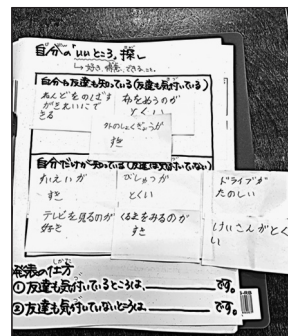 自分の「いいところ」探し
↳好き、得意、できる…
自分も友達も知っている(友達も気付いている)
ねんどをのばす
がきれいにで
きる
布をぬうのが
とくい
外のしょくぎょうが
すき
自分だけが知っている(友達は気付いていない)
かえいが
すき
びじゅつが
とくい
ドライブが
たのしい
テレビを見るのが
好き
くるまをみるのが
すき
けいさんがとく
い
発表の仕方
①友達も気付いているところは、 です。
②友達も気付いていないところは、 です。